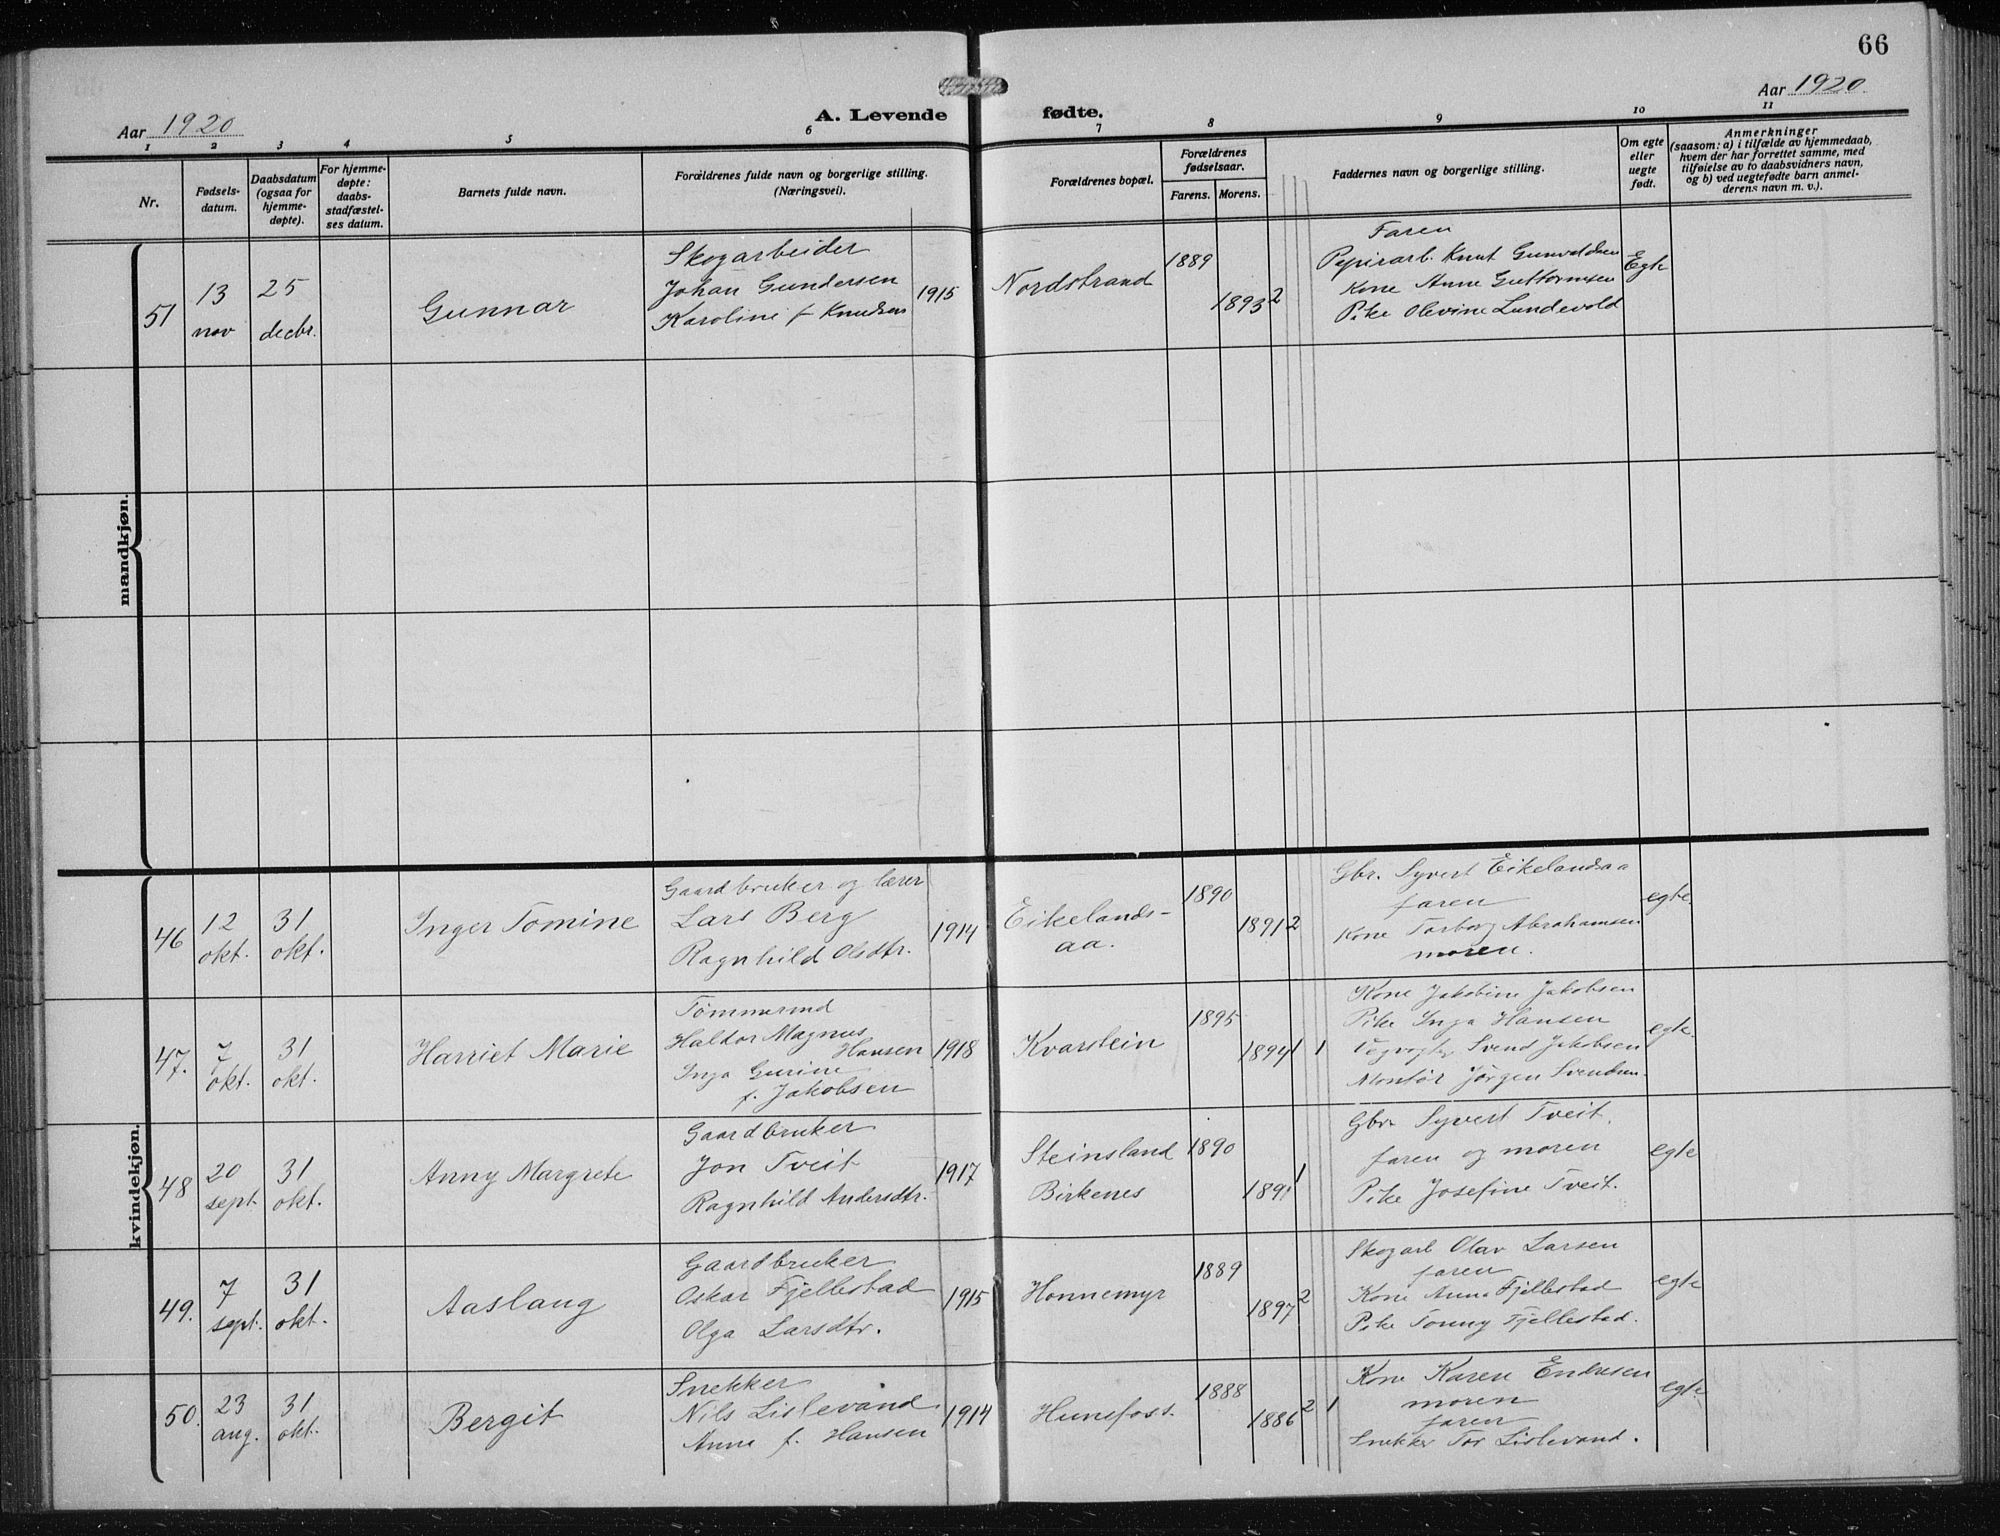 66
Aar 1920
A. Levende fødte.
Aar 1920.
1 2 3 4 5 6 7 8 9 10 11
Nr.
Fødsels-
datum.
Daabsdatum
(ogsaa for
hjemme-
døpte).
For hjemme-
døpte:
daabs-
stadfæstel-
ses datum.
Barnets fulde navn.
Forældrenes fulde navn og borgerlige stilling.
(Næringsvei).
Forældrenes bopæl.
Forældrenes
fødselsaar.
Farens. Morens.
Faddernes navn og borgerlige stilling.
Om egte
eller
uegte
født.
Anmerkninger
(saasom: a) i tilfælde av hjemmedaab,
hvem der har forrettet samme, med
tilføielse av to daabsvidners navn,
og b) ved uegtefødte barn anmel-
derens navn m. v.).
mandkjøn.
51
13
nov
25
decbr.
Gunnar
Skogarbeider
Johan Gundersen
Karoline f Knudsen
1915
Nordstrand
1889
1893
2
Faren
Papirarb. Knut Gunvaldsen
Kone Anne Guttormsen
Pike Olevine Lundevold
Egte
kvindekjøn.
46
12
okt.
31
okt.
Inger Tomine
Gaardbruker og lærer
Lars Berg
Ragnhild Olsdtr.
1914
Eikelands-
aa.
1890
1891
2
Gbr. Syvert Eikelandsaa
faren
Kone Torborg Abrahamsen
moren.
egte.
47.
7
okt.
31
okt.
Harriet Marie
Tømmermd
Haldor Magnus
Hansen
Inga Gurine
f. Jakobsen
1918
Kvarstein
1895
1894
1 1
Kone Jakobine Jakobsen
Pike Inga Hansen
Vegvogter Svend Jakobsen
Montør Jørgen Svendsen
egte.
48
20
sept.
31
okt.
Anny Margrete
Gaardbruker
Jon Tveit
Ragnhild Andersdtr.
1917
Steinsland
Birkenes
1890
1891
1
Gbr. Syvert Tveit,
faren og moren
Pike Josefine Tveit.
egte
49.
7
sept.
31
okt.
Aaslaug
Gaardbruker
Oskar Fjellestad
Olga Larsdtr.
1915
Honnemyr
1889
1897
2
Skogarb Olav Larsen
faren
Kone Anna Fjellestad
Pike Tonny Fjellestad.
egte
50.
23
aug.
31
okt.
Bergit
Snekker
Nils Lislevand
Anne f. Hansen
1914
Hunsfoss.
1888
1886
2 1
Kone Karen Endresen
moren
faren
Snekker Tor Lislevand.
egte